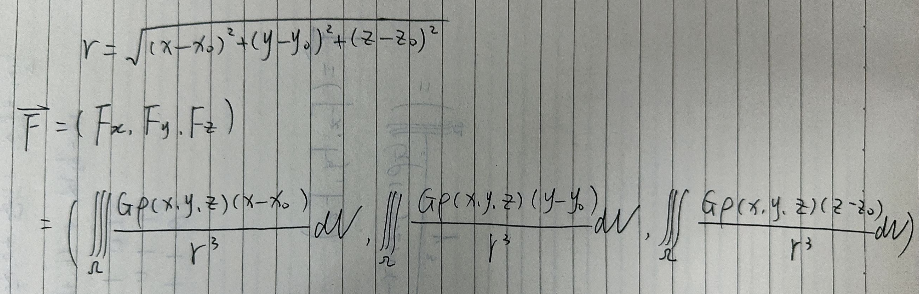 r = √((x-x₀)²+(y-y₀)²+(z-z₀)²)
F⃗ = (Fx, Fy, Fz)
= (∭_Ω Gρ(x,y,z)(x-x₀)/r³ dV, ∭_Ω Gρ(x,y,z)(y-y₀)/r³ dV, ∭_Ω Gρ(x,y,z)(z-z₀)/r³ dV)